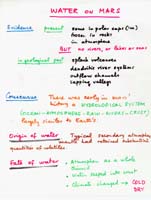 WATER ON MARS
Evidence present some in polar caps (no)
been in rocks
in atmosphere
BUT no rivers, or lakes or seas
in geological past splash volcanoes
dendritic river systems
outflow channels
sapping valleys
Consensus There was early in mars'
history a HYDROLOGICAL SYSTEM
(OCEAN - ATMOSPHERE - RAIN - RIVERS - CRUST)
largely similar to Earth's
Origin of water Typical secondary atmosphere
quantities of volatiles would had retained substantial
Fate of water Atmosphere as a whole
thinned
Water seeped into crust
Climate changed to COLD
DRY